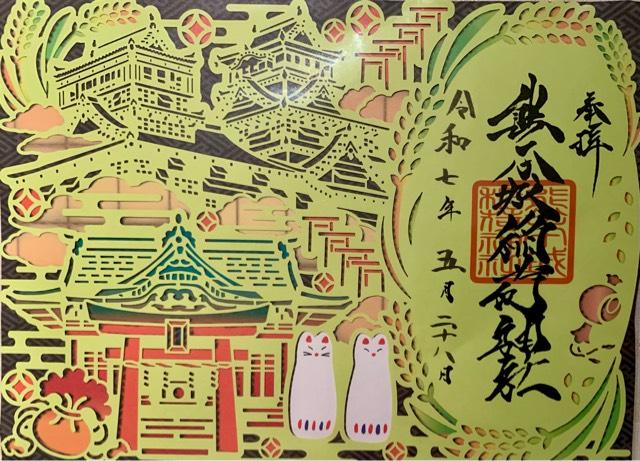 奉拝
熊本城稲荷神社
令和七年五月二十八日